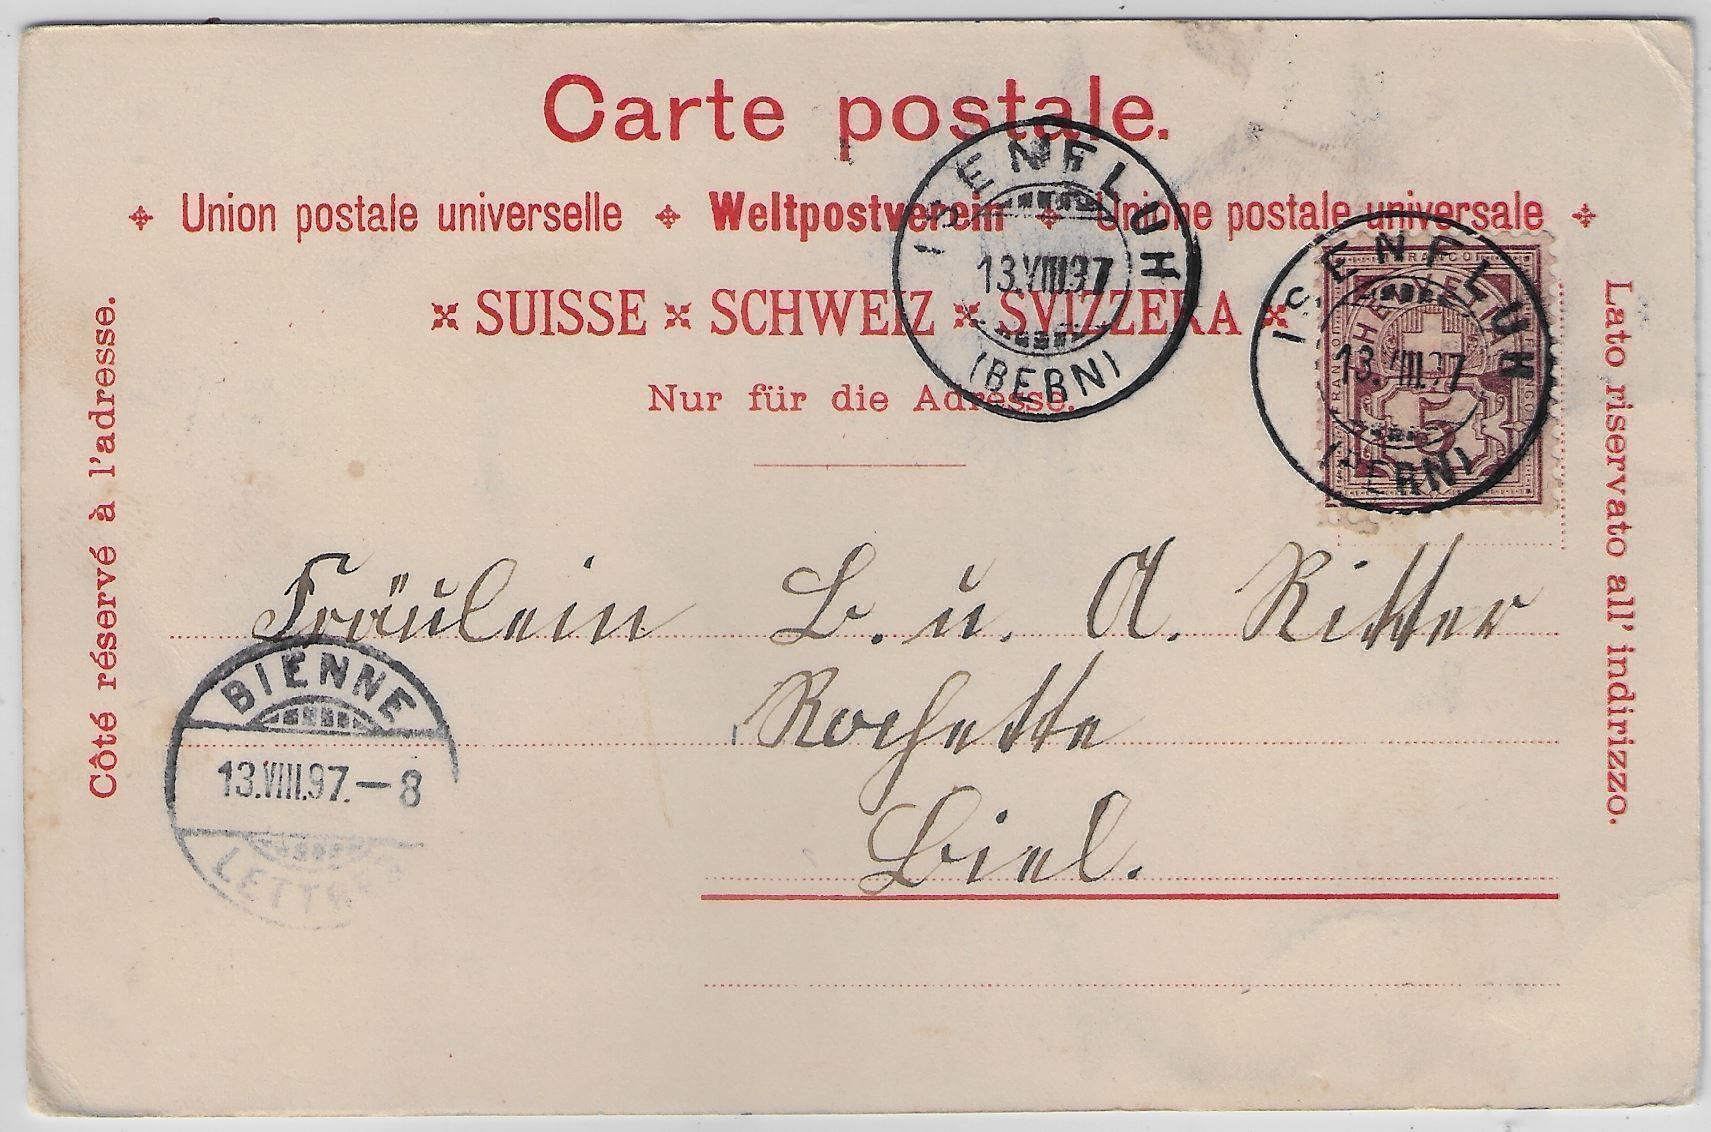 Carte postale.
Union postale universelle Weltpostverein Unione postale universale
SUISSE SCHWEIZ SVIZZERA
Nur für die Adresse.
Côté réservé à l'adresse.
Lato riservato all' indirizzo.
ISENFLUH
13.VIII.97
(BERN)
ISENFLUH
13.VIII.97
(BERN)
FRANCO
HELVETIA
5
Fräulein B. u. A. Ritter
Rochette
Biel.
BIENNE
13.VIII.97.-8
LETTRES